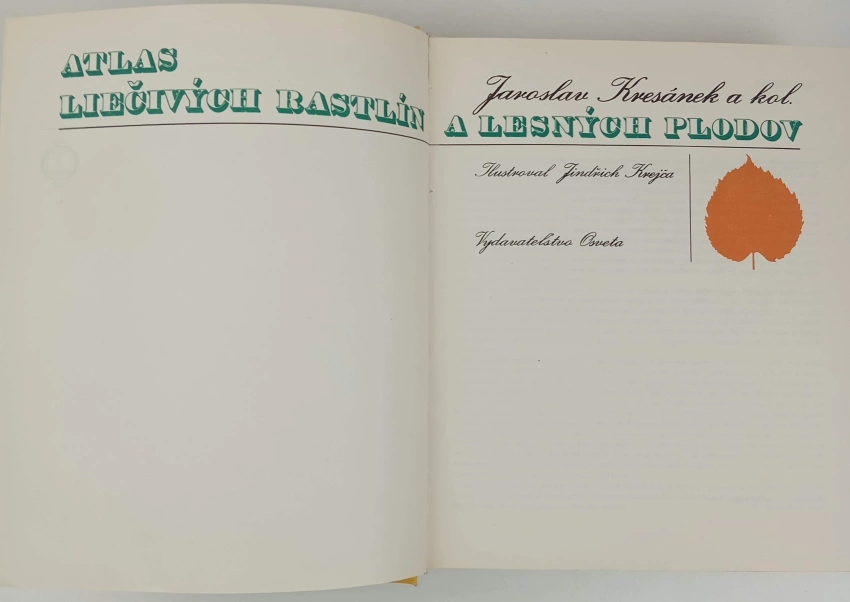 ATLAS
Jaroslav Kresánek a kol.
LIEČIVÝCH RASTLÍN A LESNÝCH PLODOV
Ilustroval Jindřich Krejča
Vydavatelstvo Osveta